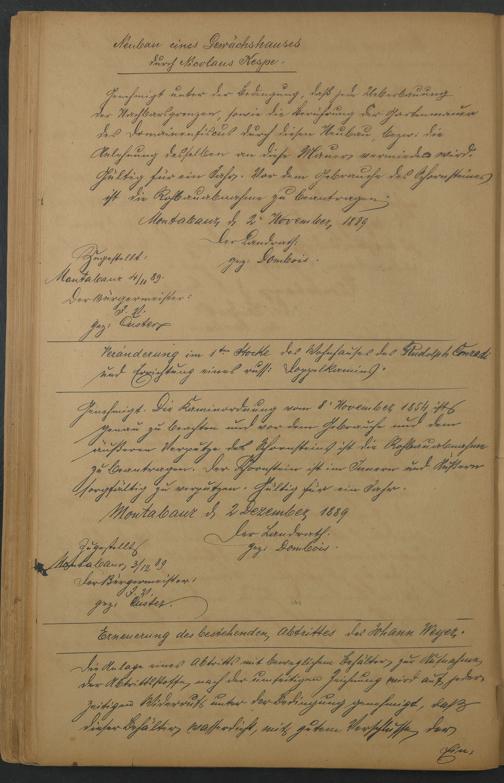 Neubau eines Gewächshauses
durch Nicolaus Kespe.
Genehmigt unter der Bedingung, daß jede Ueberbauung
der Nachbargrenzen, sowie die Berührung der Gartenmauer
des Domainenfiscus durch diesen Neubau, bezw. die
Anlehnung desselben an diese Mauer vermieden wird.
Gültig für ein Jahr. Vor dem Gebrauche des Schornsteines
ist die Rohbauabnahme zu beantragen.
Montabaur, d. 2. November 1889
Der Landrath:
gez. Dombois.
Zugestellt:
Montabaur 4/11 89.
Der Bürgermeister:
J. V.
gez. Custer
Veränderung im 1ten Stocke des Wohnhauses des Rudolph Conradi
und Errichtung eines russ. Doppelkamins.
Genehmigt. Die Kaminordnung vom 8. November 1854 ist
genau zu beachten und vor dem Gebrauch und dem
äußeren Verputze des Schornsteins ist die Rohbauabnahme
zu beantragen. Der Schornstein ist im Innern und Äußern
sorgfältig zu verputzen. Gültig für ein Jahr.
Montabaur, d. 2 Dezember 1889
Der Landrath.
gez. Dombois.
Zugestellt
Montabaur, 3/12 89
Der Bürgermeister:
J. V.
gez. Custer.
Erneuerung des bestehenden Abtrittes des Johann Weyer.
Die Anlage eines Abtritts mit beweglichem Behälter zur Aufnahme
der Abtrittstoffe, nach der umseitigen Zeichnung wird auf jeder-
zeitigen Widerruf unter der Bedingung genehmigt, daß
dieser Behälter wasserdicht, mit gutem Verschlusse, der